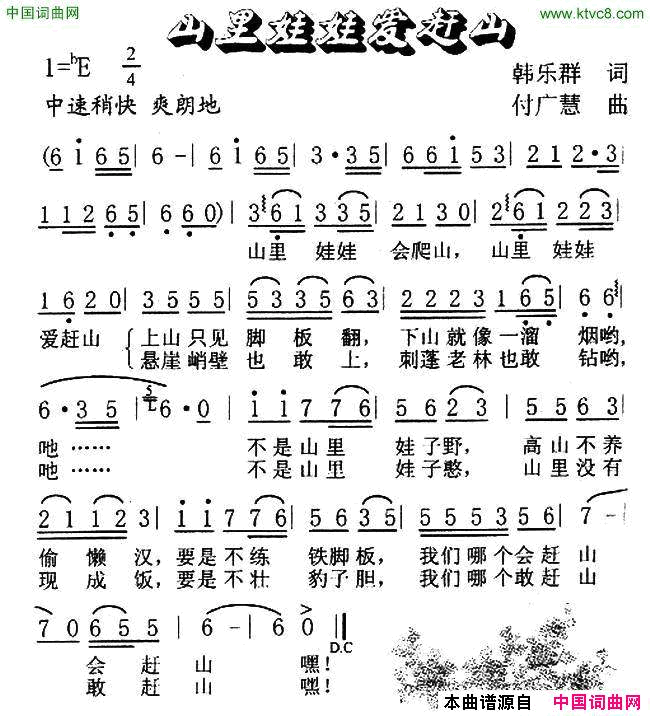 中国词曲网
www.ktvc8.com
山里娃娃爱赶山
1=♭E 2/4
韩乐群 词
中速稍快 爽朗地
付广慧 曲
(6 i 6 5 | 6 - | 6 i 6 5 | 3 · 3 5 | 6 6 i 5 3 | 2 1 2 · 3 |
1 1 2 6 5 | 6 6 0) | 3 6 1 | 3 3 5 | 2 1 3 0 | 2 6 1 | 2 2 3 |
山里 娃娃 会爬山, 山里 娃娃
1 6 2 0 | 3 5 5 5 | 5 3 3 5 6 3 | 2 2 2 3 1 6 5 | 6 6 |
爱赶山 上山只见 脚 板 翻, 下山就像一溜 烟哟,
悬崖峭壁 也 敢 上, 刺蓬老林也敢 钻哟,
6 · 3 5 | 5 6 · 0 | i i 7 7 6 | 5 6 2 3 | 5 6 6 3 |
吔…… 不是山里 娃子野, 高山不养
吔…… 不是山里 娃子憨, 山里没有
2 1 1 2 3 | i i 7 7 6 | 5 6 3 5 | 5 5 5 3 5 6 | 7 - |
偷 懒 汉, 要是不练 铁脚板, 我们哪个会赶 山
现 成 饭, 要是不壮 豹子胆, 我们哪个敢赶 山
7 0 6 5 5 | 6 - | 6 - | 6 0 ‖
D.C
会 赶 山 嘿!
敢 赶 山 嘿!
本曲谱源自 中国词曲网